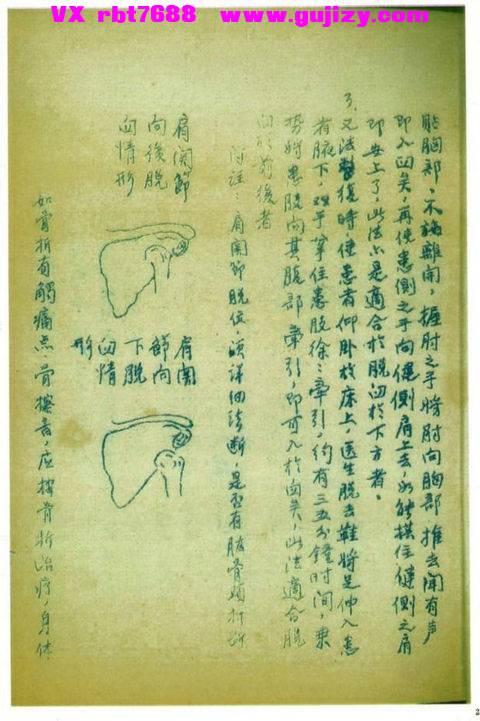 VX rbt7688 www.gujizy.com
貼胸部，不稍離開，握肘之手將肘向胸部推去聞有声
即入臼矣，再使患侧之手向健侧肩上去如能摸住健侧之肩
即安上了，此法亦是適合於脱臼於下方者。
3、又法整復時使患者仰卧於床上，医生脱去鞋將足伸入患
者腋下，双手拿住患肢徐々牽引，約有三五分鐘时间，乘
势將患肢向其腹部牽引，即可入於臼矣，此法適合脱
臼於前後者
附注：肩関節脱位須详细診断，是否有肱骨頭打折
肩関節
向後脱
臼情形
肩関
節向
下脱
臼情
形
如骨折有觸痛点，骨擦音，应按骨折治疗，身体
2